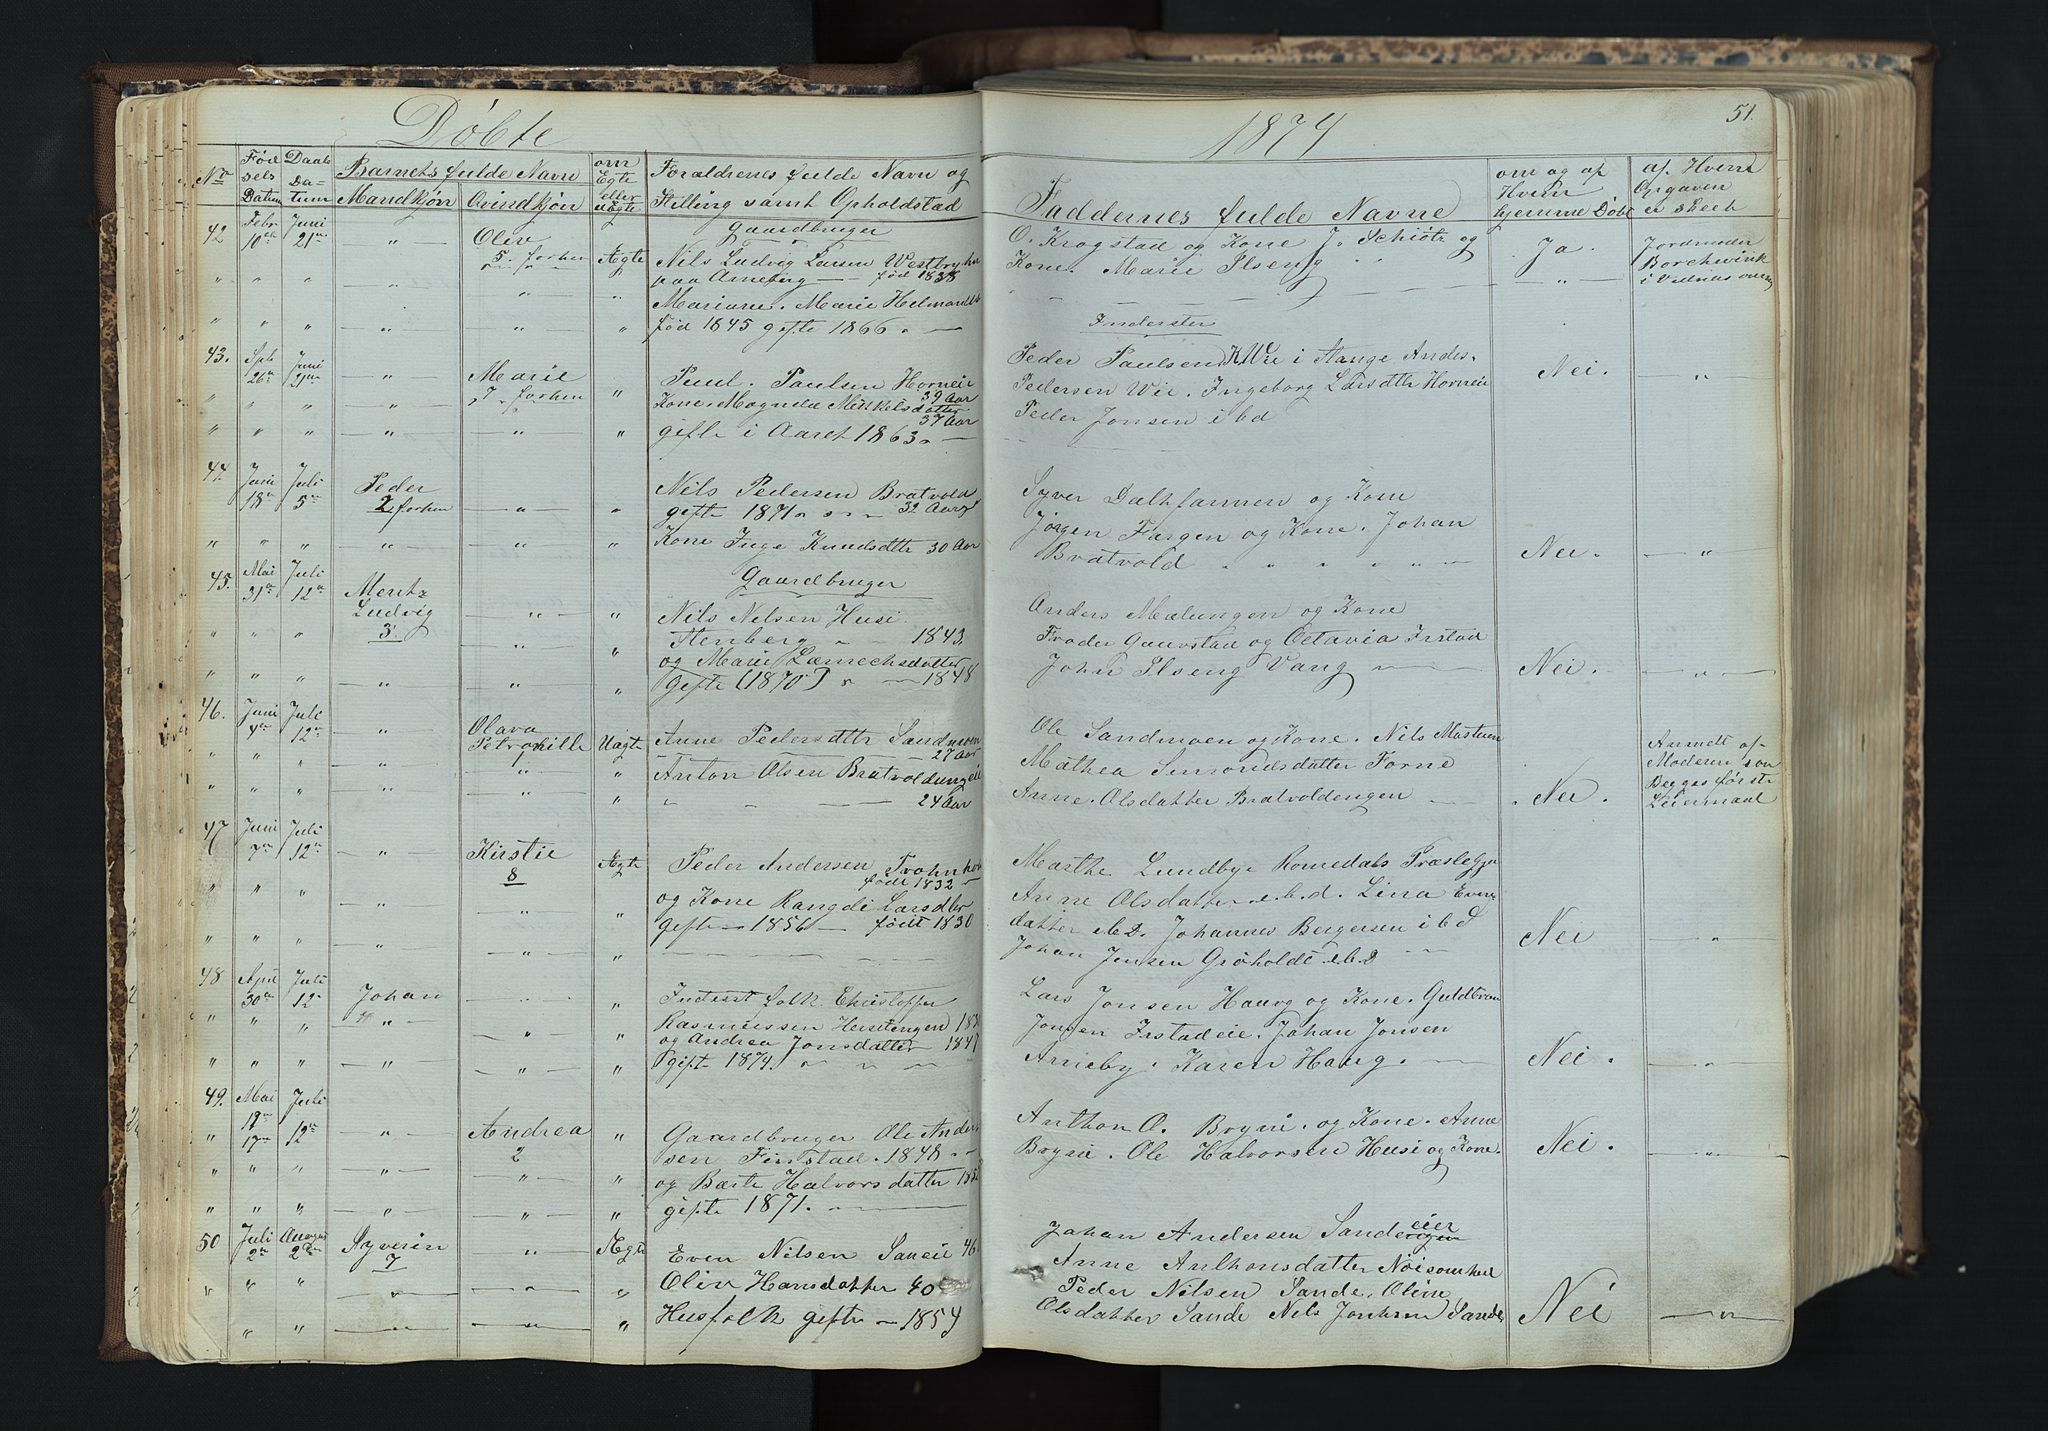 Døbte
1874
51.
No Fødsels Datum Daabs Datum Barnets fulde Navn Mandkjøn Qvindkjøn om Egte eller uægte Forældrenes fulde Navn og Stilling samt Opholdstad
Faddernes fulde Navne om og af Hvem hjemme Døbt af Hvem Opgaven er skeet
42 Febr 10de Juni 21de " Oliv 5. forhen Ægte Gaardbruger
Nils Ludvig Larsen Westby
paa Arneberg — født 1838
Mariane. Marie Helmandsd
fød 1845 gifte 1866 —
O. Krogstad og Kone J. Schiøtz og
Kone. Marie Ilseng
Ja Jordmoder
Borchrevink
i Vednas
Inderster
43. Sptb 26de Juni 21de " Marie 7 forhen "
Paul. Paulsen Horneie
39 Aar
Kone. Magnda Mikkelsdatter
37 Aar
gifte i Aaret 1863 —
Peder Paulsen Wii i Stange Andes.
Pedersen Wii. Ingeborg Larsdtr Horneie
Peder Jonsen i bd
Nei. "
44. Juni 18de Juli 5de Peder 2 forhen " "
Nils Pedersen Bratvold
gifte 1871 32 Aar
Kone Inge Knudsdttr 30 Aar
Syver Dalhfarmen og Kone
Jørgen Fargen og Kone. Johan
Bratvold " " " "
Nei. "
45. Mai 31de Juli 12de Gaardbruger
Ludvig
3. " "
Nils Nilsen Husi
Stenberg 1843.
og Marie Lamechsdatter
gifte (1870) — 1848
Anders Mælungen og Kone
Froder Gaustad og Octavia Irstad
John Ilseng Vang —
Nei. "
46. Juni 4de Juli 12de " Olava
Petronille
1 Uægte
Anne Pedersdttr Sandmoen
27 Aar
Anton Olsen Bratvoldengeie
24 Aar
Ole Sandmoen og Kone. Nils Mostuen
Mathea Simonsdatter Forne
Anne. Olsdatter Bratvoldengen
Nei. Anmelt af
Moderen som
Begges første
Leiermaal
47 Juni 7de Juli 12de " Kirstie
8 Ægte
Peder Andersen
født 1832
og Kone Rangdi Larsdtr
gifte 1856 — født 1830
Marthe Lundbye Romedals Præstegj
Anne Olsdatter i.b.d. Lina Evens
datter i.b.d. Johannes Bergersen i bd
Johan Jensen Grøholdt i.b.d
Nei "
48 April 30de Juli 12de Johan
4 " "
Inderst folk Christoffer
Rasmussen Husiengen
og Andrea Jonsdatter
gift 1874.
Lars Jonsen Haug og Kone. Guldbran
Jonsen Irstadeie. Johan Jonsen
Arneby. Karen Haug. —
Nei. "
49. Mai 17de Juli 12de " Andrea
2 "
Gaardbruger Ole Ander
sen Finstad. 1848
og Berte Halvorsdatter
gifte 1871. —
Anthon O. Bryni. og Kone. Anne
Bryni. Ole Halvorsen Husi og Kone.
Nei. "
50 Juli 2de August 2den Syverin
7 " Ægte
Even Nilsen Saneie 46
Oliv Hansdatter 40
Husfolk gifte — 1854
Johan Andersen Sandeeier
Anne Anthonsdatter Nøisomhed
Peder Nilsen Sande. Oline
Olsdatter Sande Nils Jonhsen Sande
Nei "